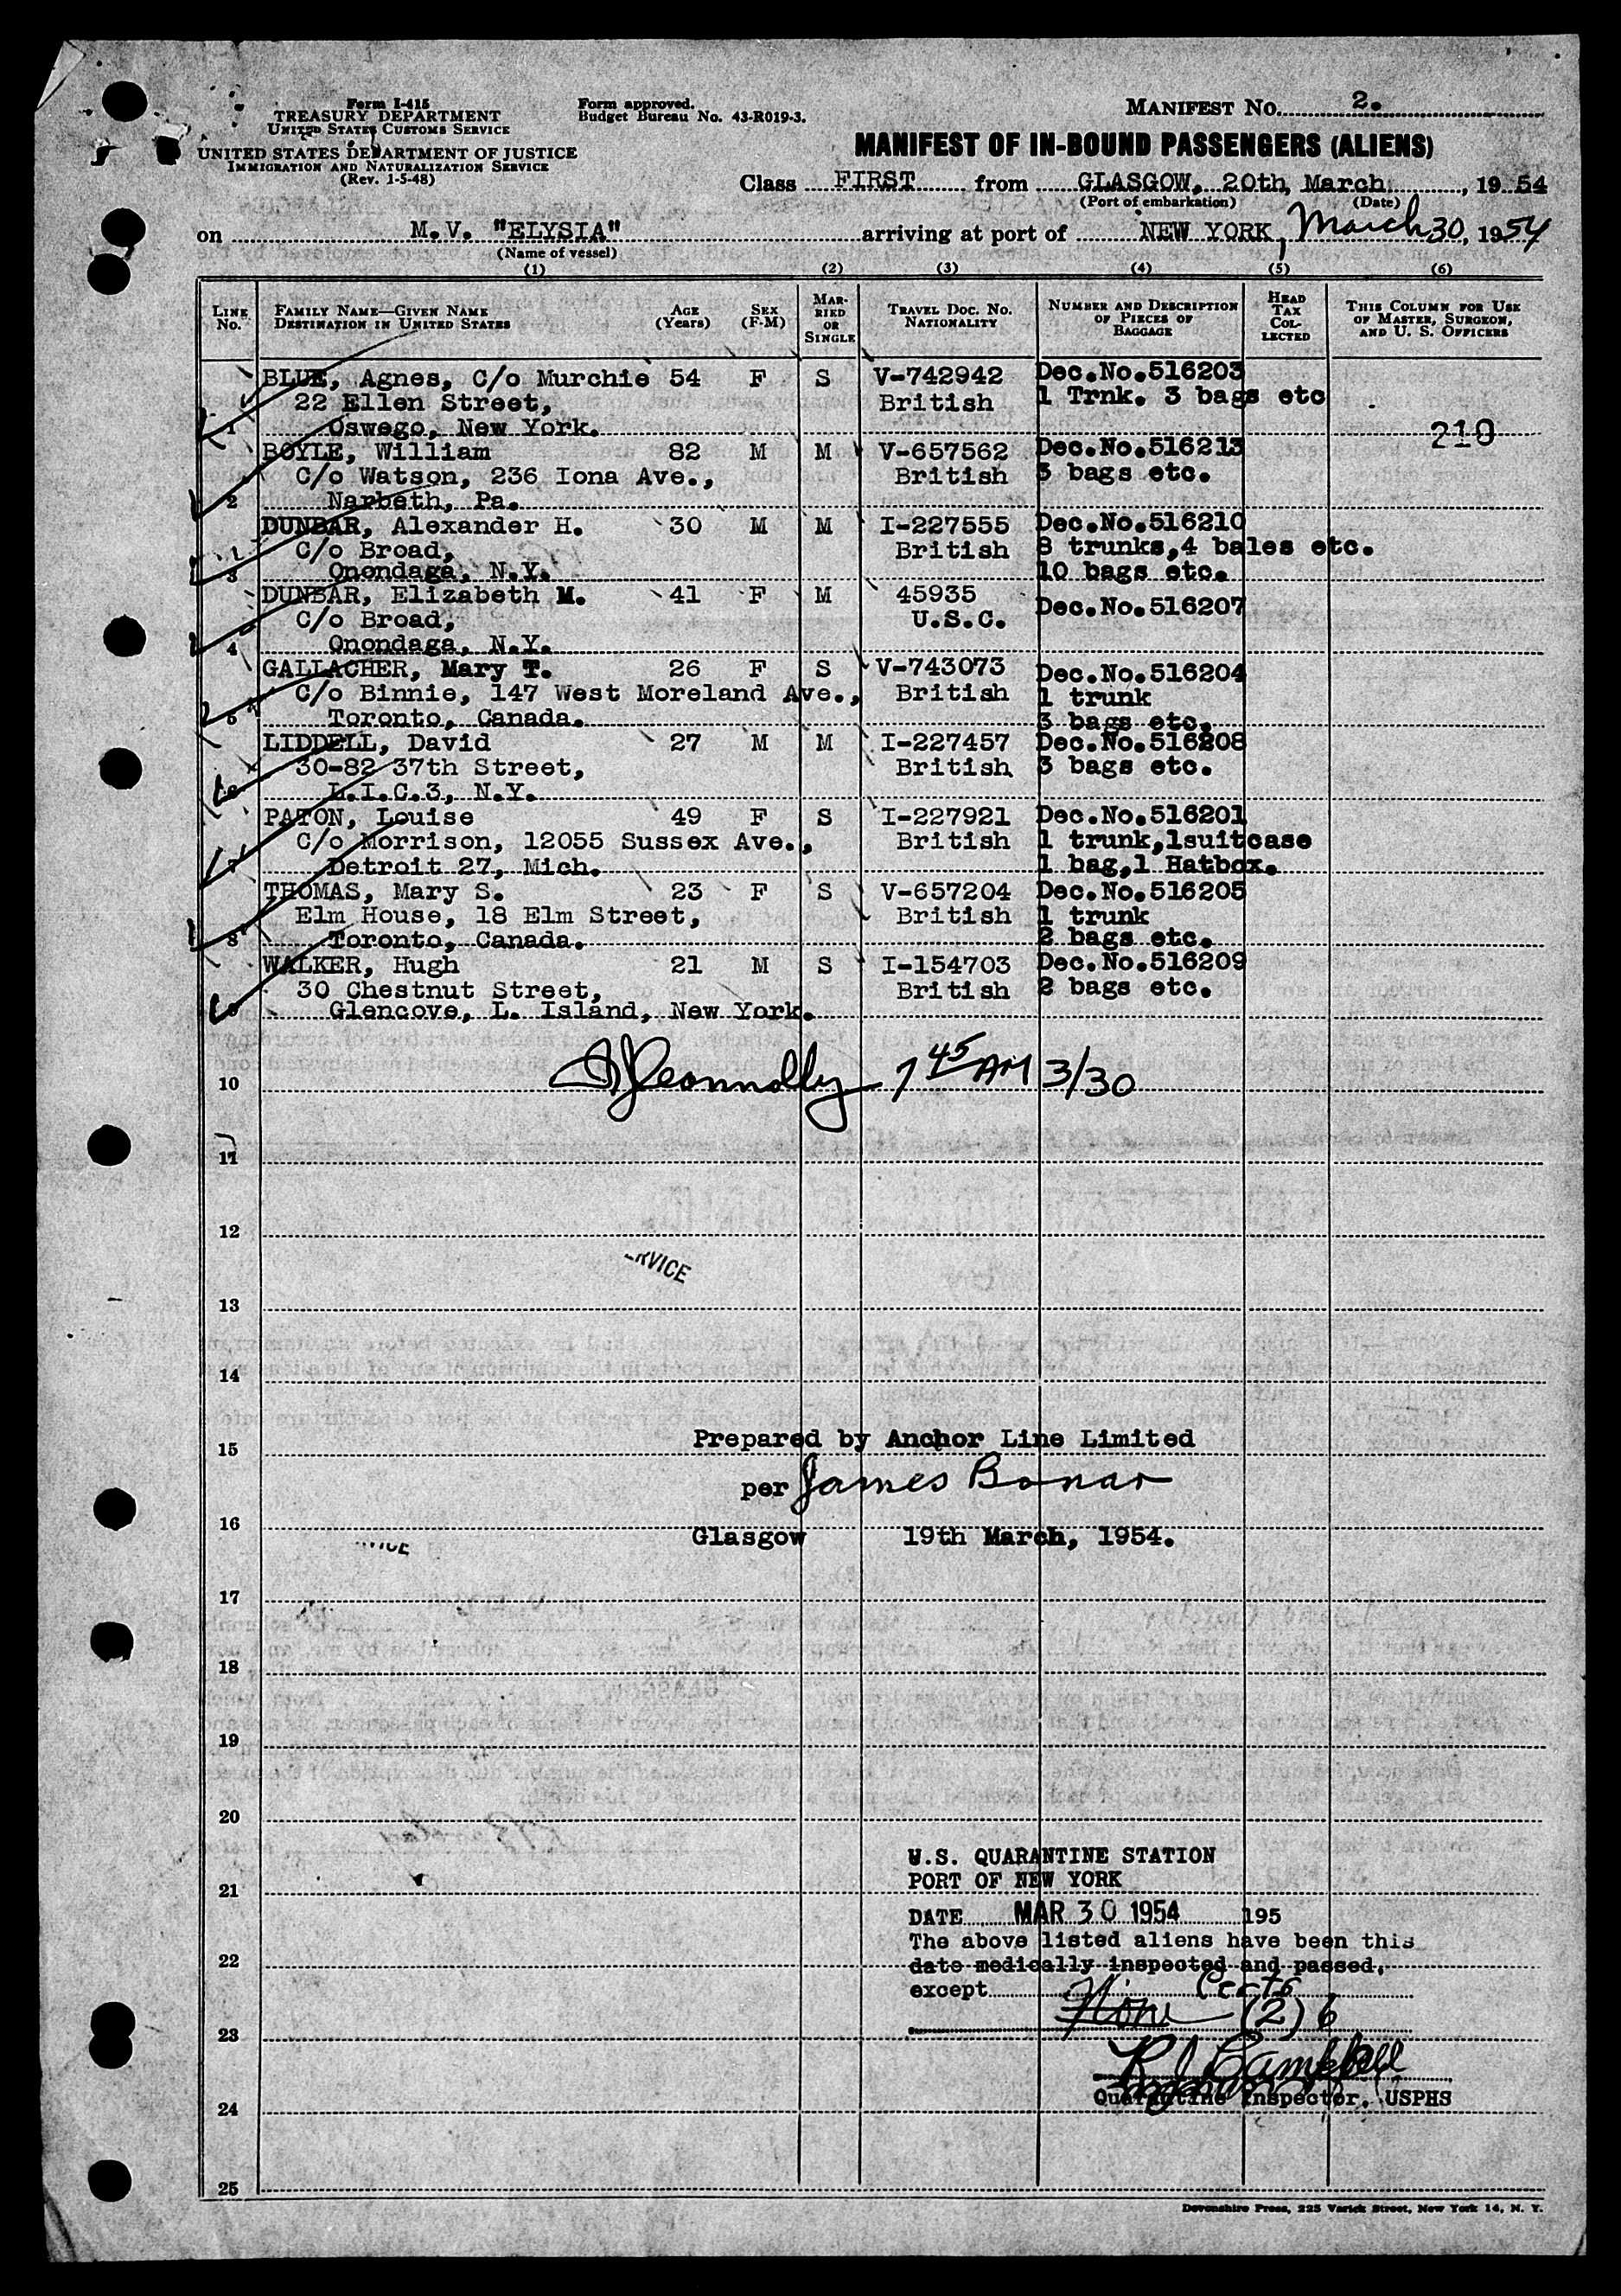 Form I-415
TREASURY DEPARTMENT
UNITED STATES CUSTOMS SERVICE
UNITED STATES DEPARTMENT OF JUSTICE
IMMIGRATION AND NATURALIZATION SERVICE
(Rev. 1-5-48)
Form approved.
Budget Bureau No. 43-R019-3.
MANIFEST NO. 2.
MANIFEST OF IN-BOUND PASSENGERS (ALIENS)
Class FIRST from GLASGOW, 20th, March, 1954
(Port of embarkation) (Date)
on M.V. "ELYSIA" arriving at port of NEW YORK, March 30, 1954
(Name of vessel)
(1) (2) (3) (4) (5) (6)
LINE No. FAMILY NAME—GIVEN NAME DESTINATION IN UNITED STATES AGE (Years) SEX (F-M) MARRIED OR SINGLE TRAVEL DOC. NO. NATIONALITY NUMBER AND DESCRIPTION OF PIECES OF BAGGAGE HEAD TAX COLLECTED THIS COLUMN FOR USE OF MASTER, SURGEON, AND U. S. OFFICERS
BLUE, Agnes, C/o Murchie 54 F S V-742942 Dec.No.516203
22 Ellen Street, British 1 Trnk. 3 bags etc
1 Oswego, New York. 210
BOYLE, William 82 M M V-657562 Dec.No.516213
C/o Watson, 236 Iona Ave., British 3 bags etc.
2 Narbeth, Pa.
DUNBAR, Alexander H. 30 M M I-227555 Dec.No.516210
C/o Broad, British 8 trunks,4 bales etc.
3 Onondaga, N.Y. 10 bags etc.
DUNBAR, Elizabeth M. 41 F M 45935 Dec.No.516207
C/o Broad, U.S.C.
4 Onondaga, N.Y.
GALLACHER, Mary T. 26 F S V-743073 Dec.No.516204
C/o Binnie, 147 West Moreland Ave., British 1 trunk
5 Toronto, Canada. 3 bags etc.
LIDDELL, David 27 M M I-227457 Dec.No.516208
30-82 37th Street, British 3 bags etc.
6 L.I.C.3, N.Y.
PATON, Louise 49 F S I-227921 Dec.No.516201
C/o Morrison, 12055 Sussex Ave., British 1 trunk,1suitcase
7 Detroit 27, Mich. 1 bag,1 Hatbox.
THOMAS, Mary S. 23 F S V-657204 Dec.No.516205
Elm House, 18 Elm Street, British 1 trunk
8 Toronto, Canada. 2 bags etc.
WALKER, Hugh 21 M S I-154703 Dec.No.516209
30 Chestnut Street, British 2 bags etc.
9 Glencove, L. Island, New York.
10 Connolly 7 45 AM 3/30
11
12
ERVICE
13
14
Prepared by Anchor Line Limited
15
per James Bonar
16
Glasgow 19th March, 1954.
VICE
17
18
19
20
U.S. QUARANTINE STATION
PORT OF NEW YORK
21
DATE MAR 30 1954 195
The above listed aliens have been this
22 date medically inspected and passed,
except
(2) 6
23
R J Campbell
Quarantine Inspector, USPHS
24
25
Devonshire Press, 225 Varick Street, New York 14, N. Y.